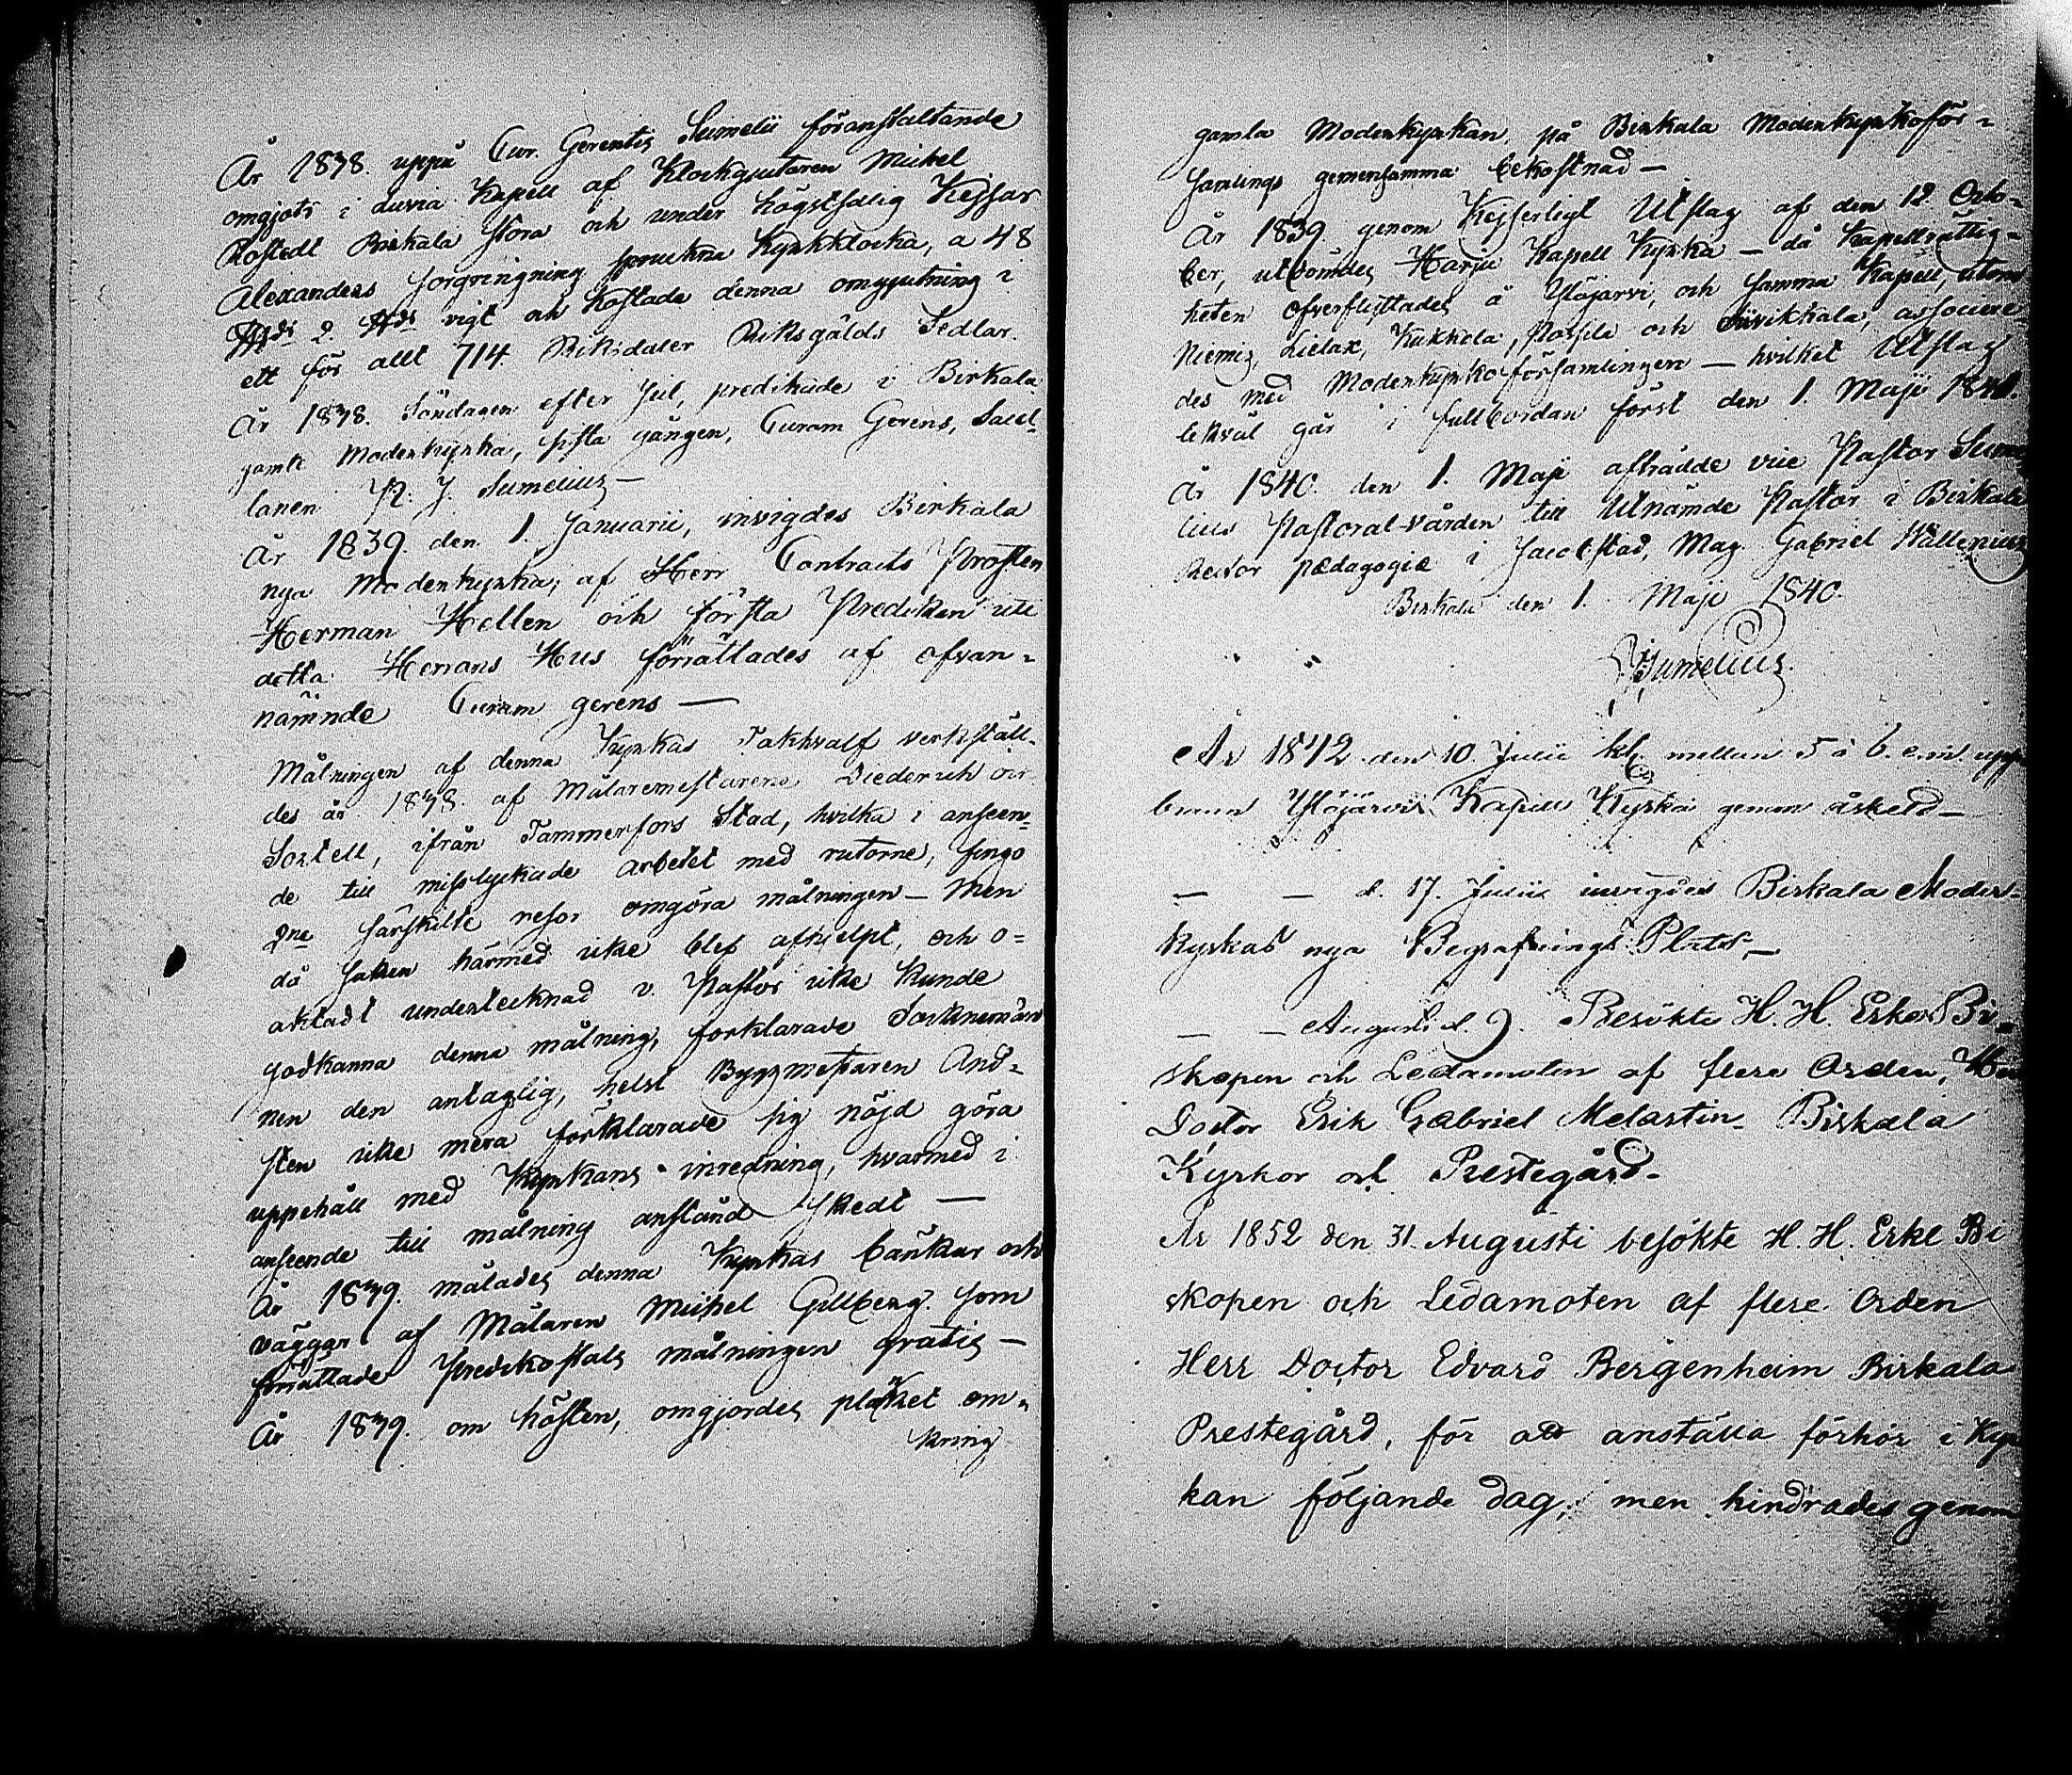 År 1838. uppå Cur. Gerentis Sumelii föranstaltande
omgjöts i Luvia Kapell af Klockgjutaren Michel
Rostedt Birkala stora och under högstsalig Kejsar
Alexanders sorgringning spruckna Kyrkklocka, a 48
2. vigt och kostade denna omgjutning i
ett för allt 714. Riksdaler Riksgälds Sedlar.
År 1838. Söndagen efter Jul, predikade i Birkala
gamla Moderkyrka, sista gången, Curam Gerens, Sacel-
lanen J. Sumelius —
År 1839. den 1. Januarii, invigdes Birkala
nya Moderkyrka, af Herr Contracts Prosten
Herman Hellen och första Predikan uti
detta Herrans Hus förrättades af ofvan-
nämnde Curam gerens —
Målningen af denna Kyrkas Takhvalf verkställ-
des år 1838. af Målaremestarene Diederich och
Sortell, ifrån Tammerfors Stad, hvilka i anseen-
de till misslyckade arbetet med rutorne, fingo
2ne särskilte resor omgöra målningen — Men
då saken härmed icke blef afhjelpt, och o=
aktadt undertecknad v. Pastor icke kunde
godkänna denna målning, förklarade Socknemän
nen den antaglig, helst Byggmestaren And-
sten icke mera förklarade sig nöjd göra
uppehåll med Kyrkans inredning, hvarmed i
anseende till målning anstånd skedt —
År 1839. målades denna Kyrkas bänkar och
väggar af Målaren Michel Gillberg. som
förrättade Predikostols målningen gratis —
År 1839. om hösten, omgjordes planket om-
kring
gamla Moderkyrkan, på Birkala Moderkyrkoför-
samlings gemensamma bekostnad —
År 1839. genom Kejserligt Utslag af den 12 Octo-
ber, utdömdes Harju Kapell Kyrka — då Kapellrättig-
heten öfverflyttades å Ylöjärvi, och samma Kapell, utom
Niemis, Lielax, och associere
des med Moderkyrkoförsamlingen — hvilket Utslag
likväl går i fullbordan först den 1. Maji 1841.
År 1840. den 1. Maji afträdde vice Pastor Sume
lius Pastoral-vården till Utnämde Pastor i Birkala
Rector pædagogiæ i Jacobstad, Mag. Gabriel Wallenius
Birkala den 1. Maji 1840.
Sumelius.
År 1842 den 10. Julii kl. mellan 5 à 6 e.m. upp
brann Ylöjärvi Kapell Kyrka genom åskeld —
— — d. 17. Julii invigdes Birkala Moder-
kyrkas nya Begrafnings Plats. —
— — Augusti d. 9. Besökte H. H. Erke Bi-
skopen och Ledamoten af flere Orden, Herr
Doctor Erik Gabriel Melartin Birkala
Kyrkor och Prestegård.
År 1852 den 31. Augusti besökte H. H. Erke Bi
skopen och Ledamoten af flere Orden
Herr Doctor Edvard Bergenheim Birkala
Prestegård, för att anställa förhör i Kyr
kan följande dag, men hindrades genom